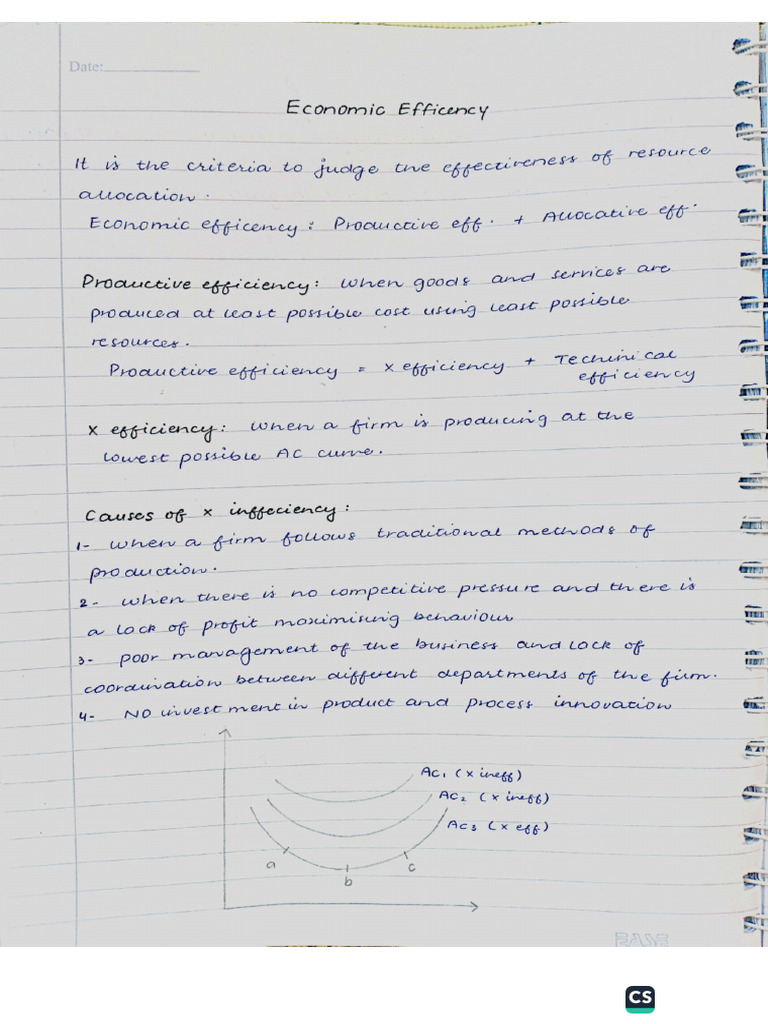 Date:
Economic Efficency
It is the criteria to judge the effectiveness of resource
allocation.
Economic efficency: Productive eff. + Allocative eff.
Productive efficiency: When goods and services are
produced at least possible cost using least possible
resources.
Productive efficiency = x efficiency + Techinical
efficiency
x efficiency: When a firm is producing at the
lowest possible AC curve.
Causes of x inffeciency:
1- When a firm follows traditional methods of
production.
2- When there is no competitive pressure and there is
a lack of profit maximising behaviour
3- Poor management of the business and lack of
coordination between different departments of the firm.
4- No investment in product and process innovation
AC1 (x ineff)
AC2 (x ineff)
AC3 (x eff)
a
b
c
EASE
CS